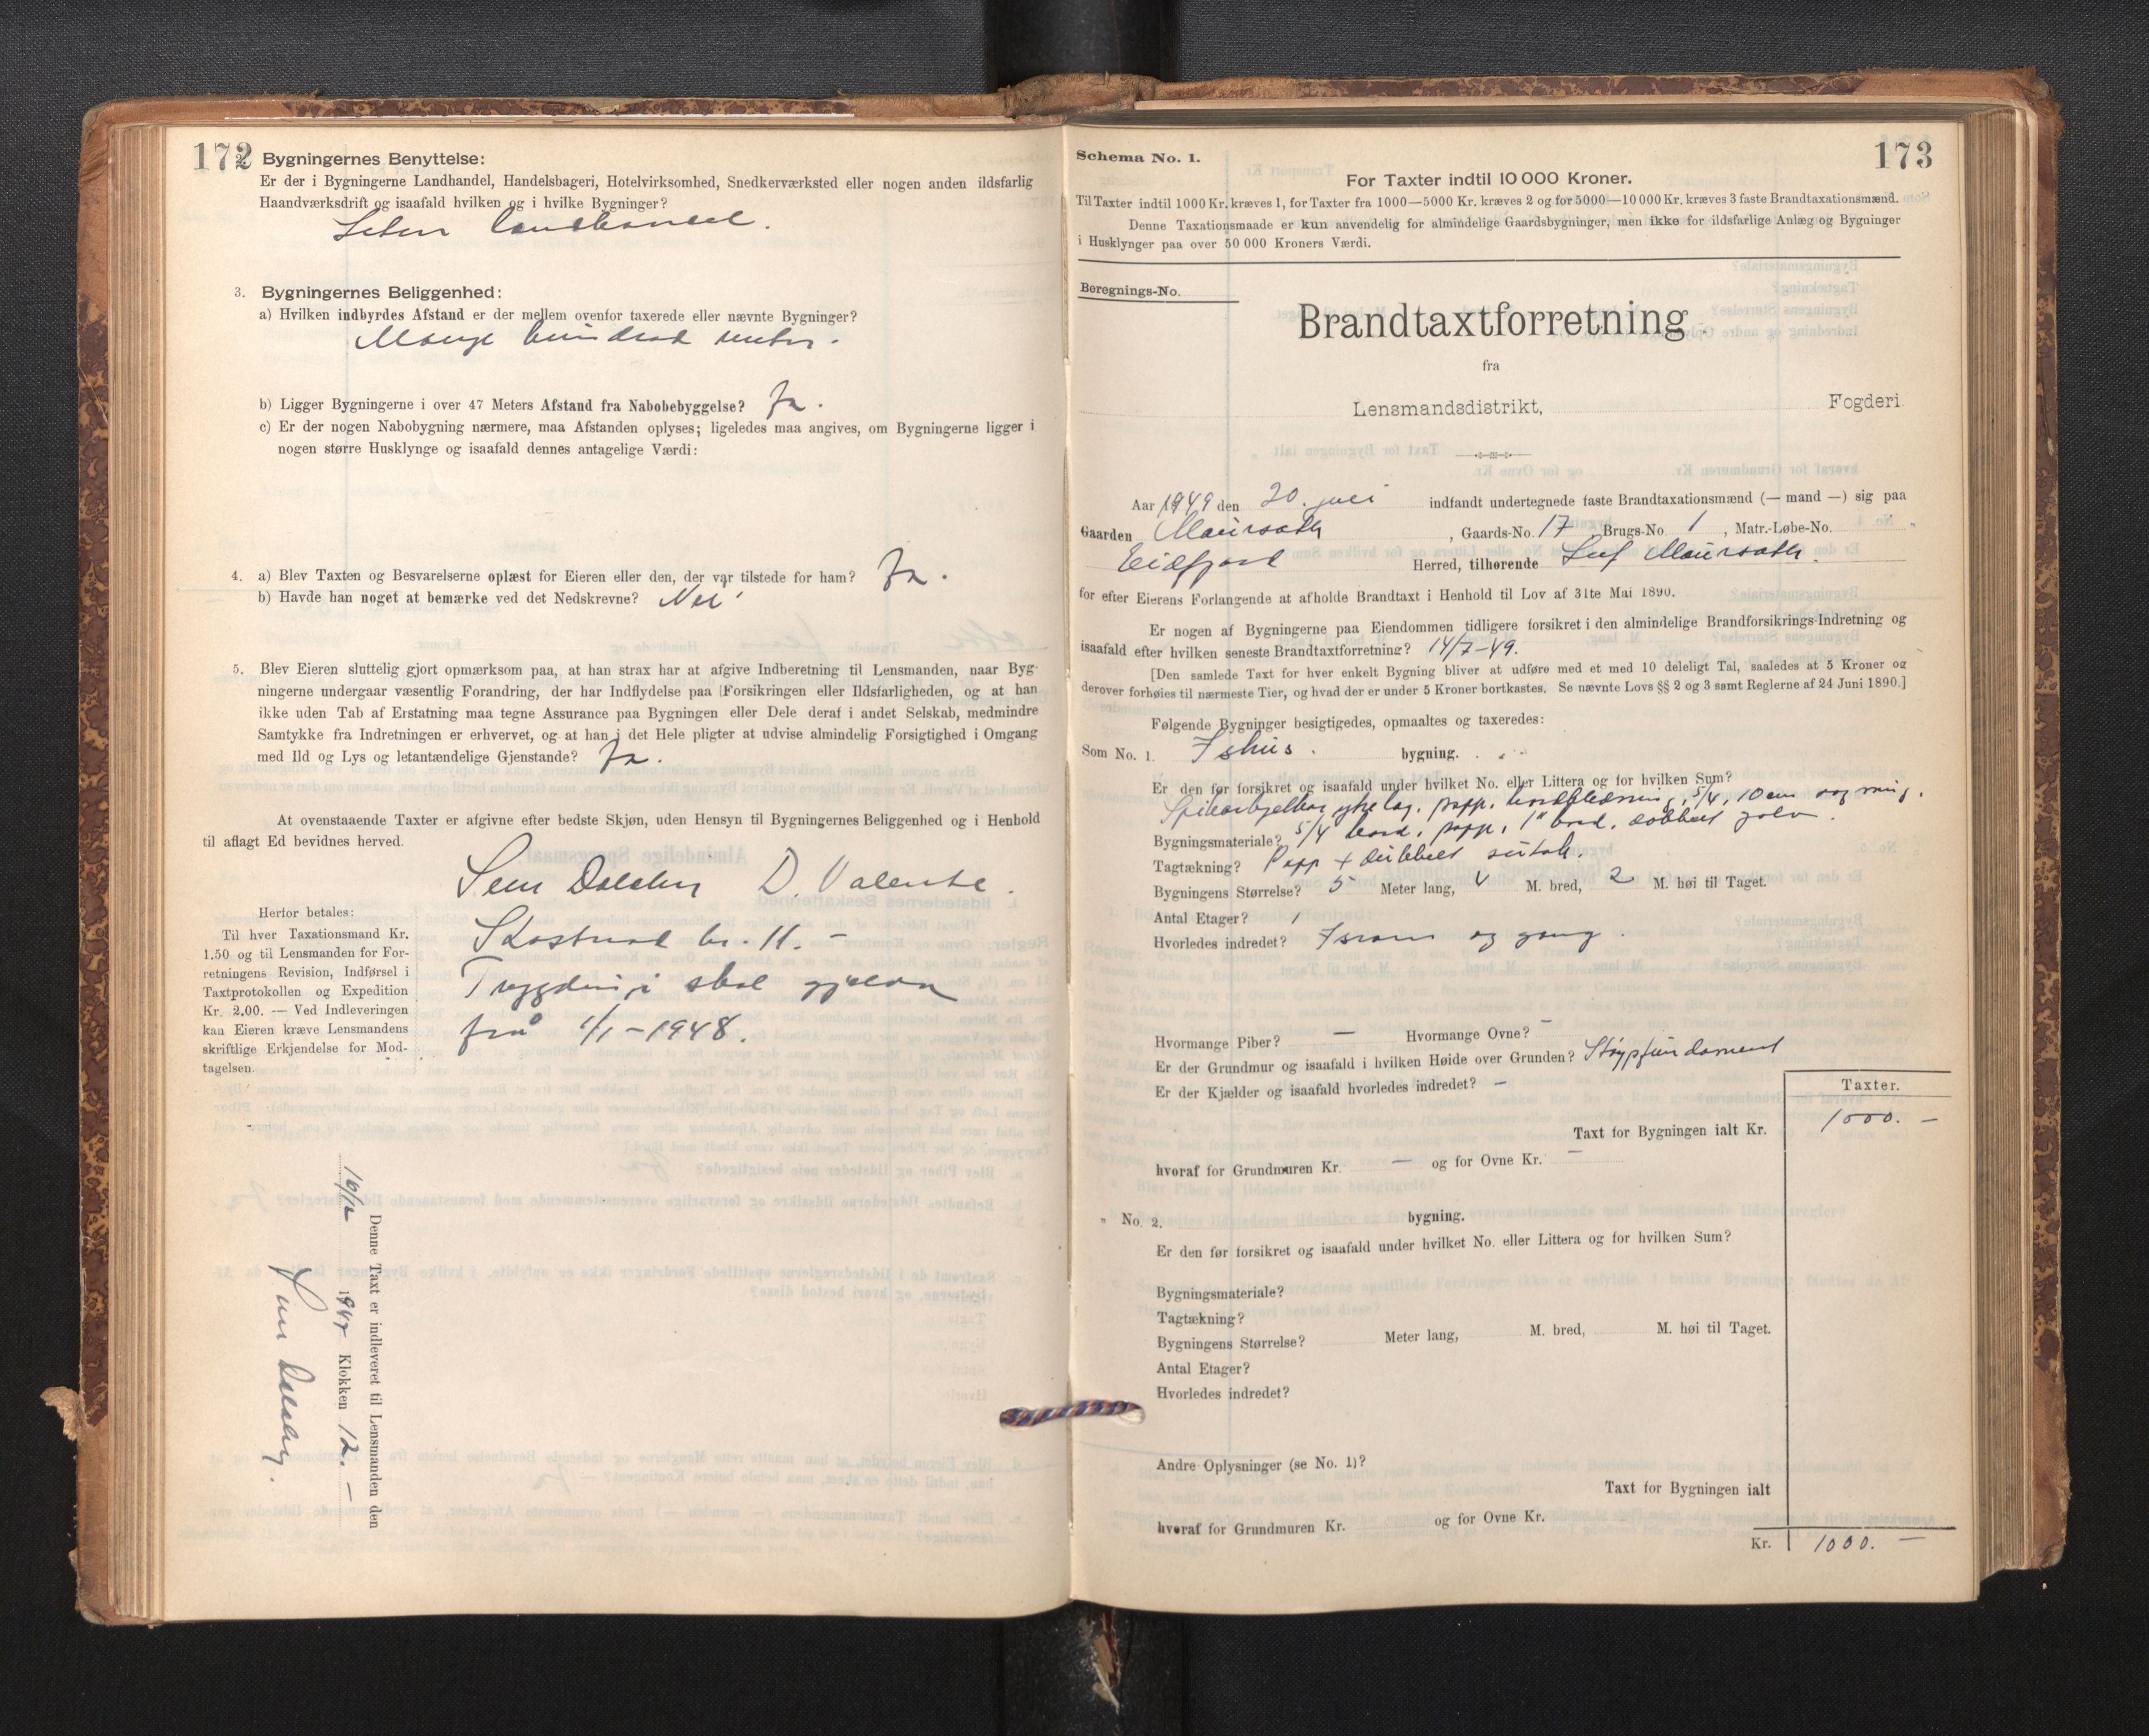 172
Bygningernes Benyttelse:
Er der i Bygningerne Landhandel, Handelsbageri, Hotelvirksomhed, Snedkerværksted eller nogen anden ildsfarlig
Haandværksdrift og isaafald hvilken og i hvilke Bygninger?
Liten landhandel.
3. Bygningernes Beliggenhed:
a) Hvilken indbyrdes Afstand er der mellem ovenfor taxerede eller nævnte Bygninger?
Mange hundrad meter.
b) Ligger Bygningerne i over 47 Meters Afstand fra Nabobebyggelse? Ja.
c) Er der nogen Nabobygning nærmere, maa Afstanden oplyses; ligeledes maa angives, om Bygningerne ligger i
nogen større Husklynge og isaafald dennes antagelige Værdi:
4. a) Blev Taxten og Besvarelserne oplæst for Eieren eller den, der var tilstede for ham? Ja.
b) Havde han noget at bemærke ved det Nedskrevne? Nei
5. Blev Eieren sluttelig gjort opmærksom paa, at han strax har at afgive Indberetning til Lensmanden, naar Byg-
ningerne undergaar væsentlig Forandring, der har Indflydelse paa Forsikringen eller Ildsfarligheden, og at han
ikke uden Tab af Erstatning maa tegne Assurance paa Bygningen eller Dele deraf i andet Selskab, medmindre
Samtykke fra Indretningen er erhvervet, og at han i det Hele pligter at udvise almindelig Forsigtighed i Omgang
med Ild og Lys og letantændelige Gjenstande? Ja.
At ovenstaaende Taxter er afgivne efter bedste Skjøn, uden Hensyn til Bygningernes Beliggenhed og i Henhold
til aflagt Ed bevidnes herved.
D. Valente.
Herfor betales:
Til hver Taxationsmand Kr.
1.50 og til Lensmanden for For-
retningens Revision, Indførsel i
Taxtprotokollen og Expedition
Kr. 2.00. — Ved Indleveringen
kan Eieren kræve Lensmandens
skriftlige Erkjendelse for Mod-
tagelsen.
Kostnad kr. 11. –
Trygdingi skal gjelda
frå 1/1 – 1948.
Denne Taxt er indleveret til Lensmanden den
16/12 1947 Klokken 12. –
173
Schema No. 1.
For Taxter indtil 10 000 Kroner.
Til Taxter indtil 1000 Kr. kræves 1, for Taxter fra 1000—5000 Kr. kræves 2 og for 5000—10 000 Kr. kræves 3 faste Brandtaxationsmænd.
Denne Taxationsmaade er kun anvendelig for almindelige Gaardsbygninger, men ikke for ildsfarlige Anlæg og Bygninger
i Husklynger paa over 50 000 Kroners Værdi.
Beregnings-No.
Brandtaxtforretning
fra
Lensmandsdistrikt, Fogderi
Aar 1949 den 20. juli indfandt undertegnede faste Brandtaxationsmænd (— mand —) sig paa
Gaarden Maursæth, Gaards-No. 17 Brugs-No. 1, Matr.-Løbe-No.
Eidfjord Herred, tilhørende Leif Maursæth.
for efter Eierens Forlangende at afholde Brandtaxt i Henhold til Lov af 31te Mai 1890.
Er nogen af Bygningerne paa Eiendommen tidligere forsikret i den almindelige Brandforsikrings-Indretning og
isaafald efter hvilken seneste Brandtaxtforretning? 14/7-49.
[Den samlede Taxt for hver enkelt Bygning bliver at udføre med et med 10 deleligt Tal, saaledes at 5 Kroner og
derover forhøies til nærmeste Tier, og hvad der er under 5 Kroner bortkastes. Se nævnte Lovs §§ 2 og 3 samt Reglerne af 24 Juni 1890.]
Følgende Bygninger besigtigedes, opmaaltes og taxeredes:
Som No. 1. Ishus. bygning.
Er den før forsikret og isaafald under hvilket No. eller Littera og for hvilken Sum?
papp, 5/4, 10 cm
Bygningsmateriale? 5/4 bord, papp, 1" bord, dobbelt golv.
Tagtækning? Papp + dubbelt sutak.
Bygningens Størrelse? 5 Meter lang, 4 M. bred, 2 M. høi til Taget.
Antal Etager? 1
Hvorledes indredet? Isrom og gang.
Hvormange Piber? — Hvormange Ovne? –
Er der Grundmur og isaafald i hvilken Høide over Grunden? Støypfundament
Er der Kjælder og isaafald hvorledes indredet? –
Taxter.
Taxt for Bygningen ialt Kr. 1000. –
hvoraf for Grundmuren Kr. — og for Ovne Kr. –
" No. 2. bygning.
Er den før forsikret og isaafald under hvilket No. eller Littera og for hvilken Sum?
Bygningsmateriale?
Tagtækning?
Bygningens Størrelse? Meter lang, M. bred, M. høi til Taget.
Antal Etager?
Hvorledes indredet?
Andre Oplysninger (se No. 1)?
Taxt for Bygningen ialt
hvoraf for Grundmuren Kr. og for Ovne Kr.
Kr. 1000. –